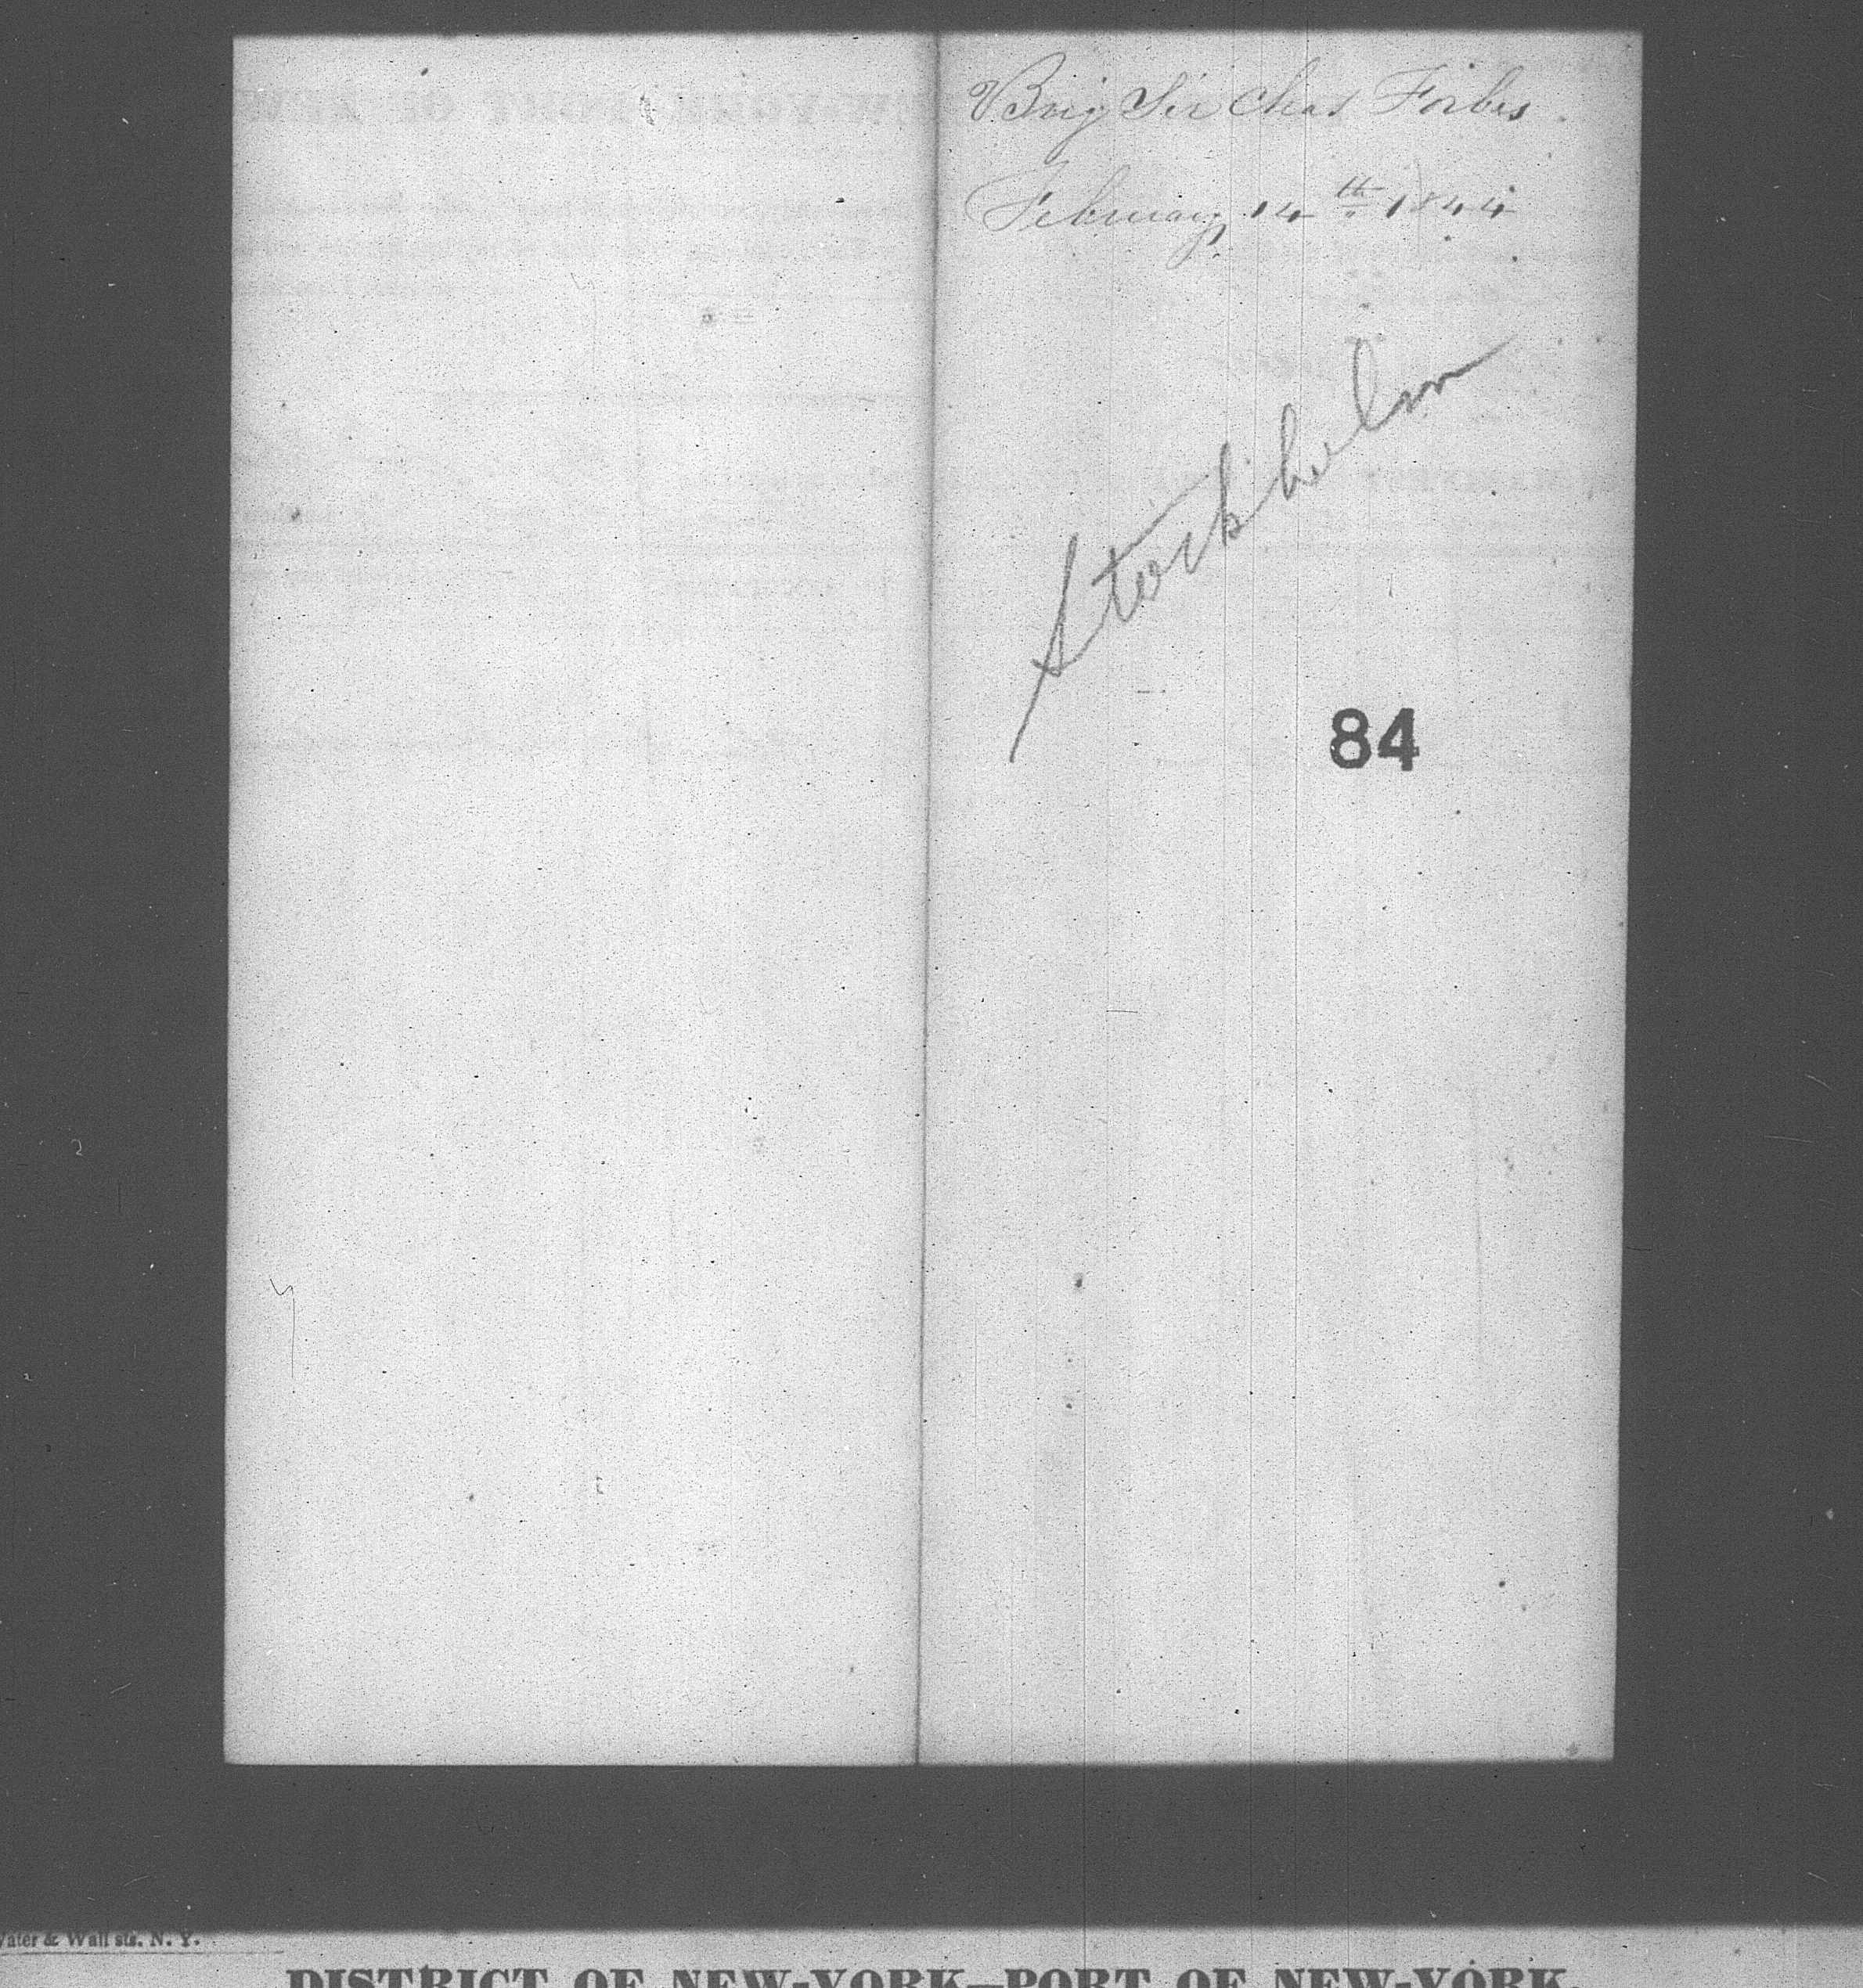 Brig Sir Chas Forbes
February 14th 1844
Stockholm
84
Water & Wall sts. N. Y.
DISTRICT OF NEW-YORK—PORT OF NEW-YORK.